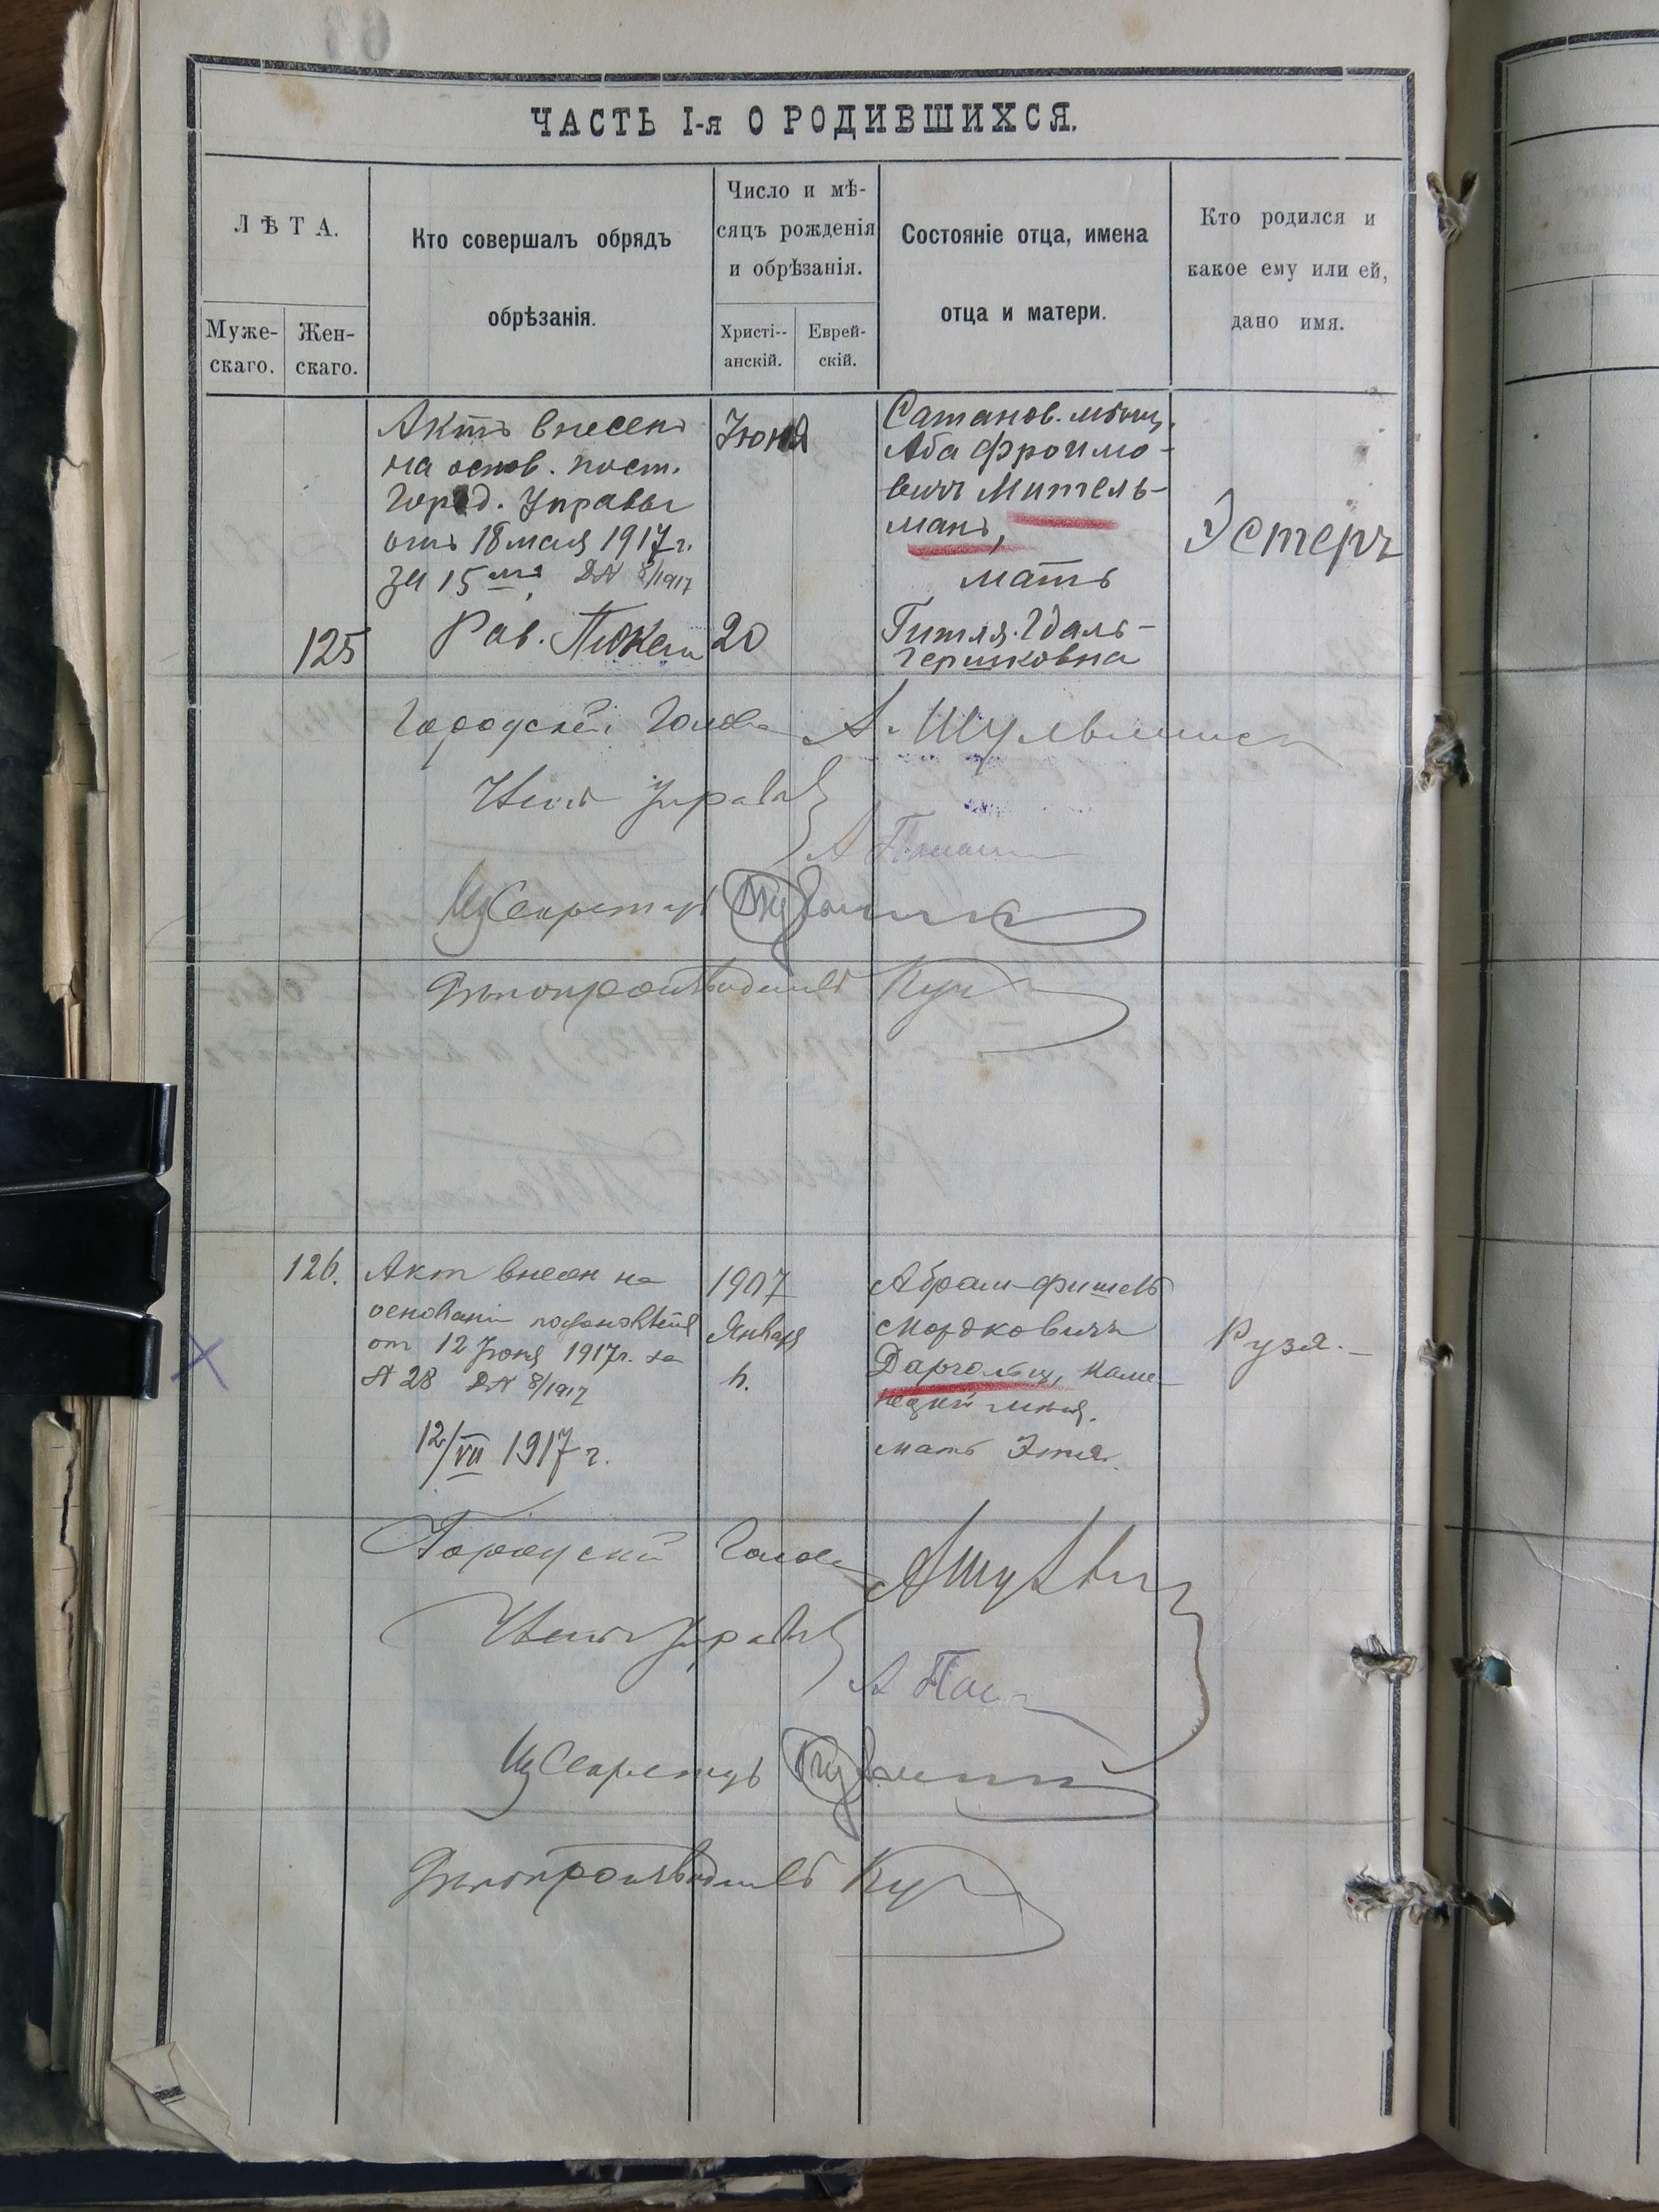 ЧАСТЬ I-я О РОДИВШИХСЯ.
ЛѢТА.
Муже-
скаго.
Жен-
скаго.
Кто совершалъ обрядъ
обрѣзанія.
Число и мѣ-
сяцъ рожденія
и обрѣзанія.
Христі--
анскій.
Еврей-
скій.
Состояніе отца, имена
отца и матери.
Кто родился и
какое ему или ей,
дано имя.
125
Актъ внесенъ
на основ. пост.
Город. Управы
отъ 18 мая 1917 г.
за 15
8/1917
Рав.
Іюня
20
Сатанов. мѣщ.
Аба Фроимо-
вичъ Митель-
манъ,
мать
Гитля. Гдаль-
Гершковна
Эстеръ
Городской Голова
Членъ Управы
А
Секретарь
Дѣлопроизводитель
126.
Акт внесен на
основаніи
от 12 Іюня 1917г. за
№ 28 8/1917
12/VII 1917 г.
1907
Января
Абрам-Фишель
Мордковичъ
Даргольц, Каме-
нецкій
мать Этя.
Рузя.-
Городской Голова
Членъ Управы
А
Секретарь
Дѣлопроизводитель